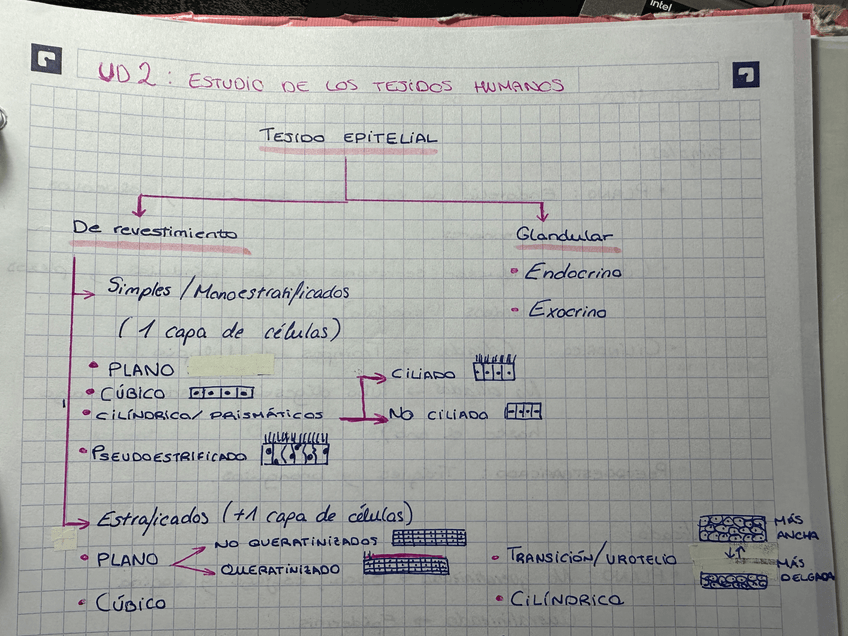 intel
UD2: ESTUDIO DE LOS TEJIDOS HUMANOS
TEJIDO EPITELIAL
De revestimiento
Glandular
• Endocrino
• Exocrino
Simples / Monoestratificados
(1 capa de células)
• PLANO
• CÚBICO
• CILÍNDRICO / PRISMÁTICOS
CILIADO
NO CILIADO
• PSEUDOESTRIFICADO
Estraficados (+1 capa de células)
• PLANO
NO QUERATINIZADOS
QUERATINIZADO
• CÚBICO
• TRANSICIÓN/UROTELIO
MÁS
ANCHA
MÁS
DELGADA
• CILÍNDRICO